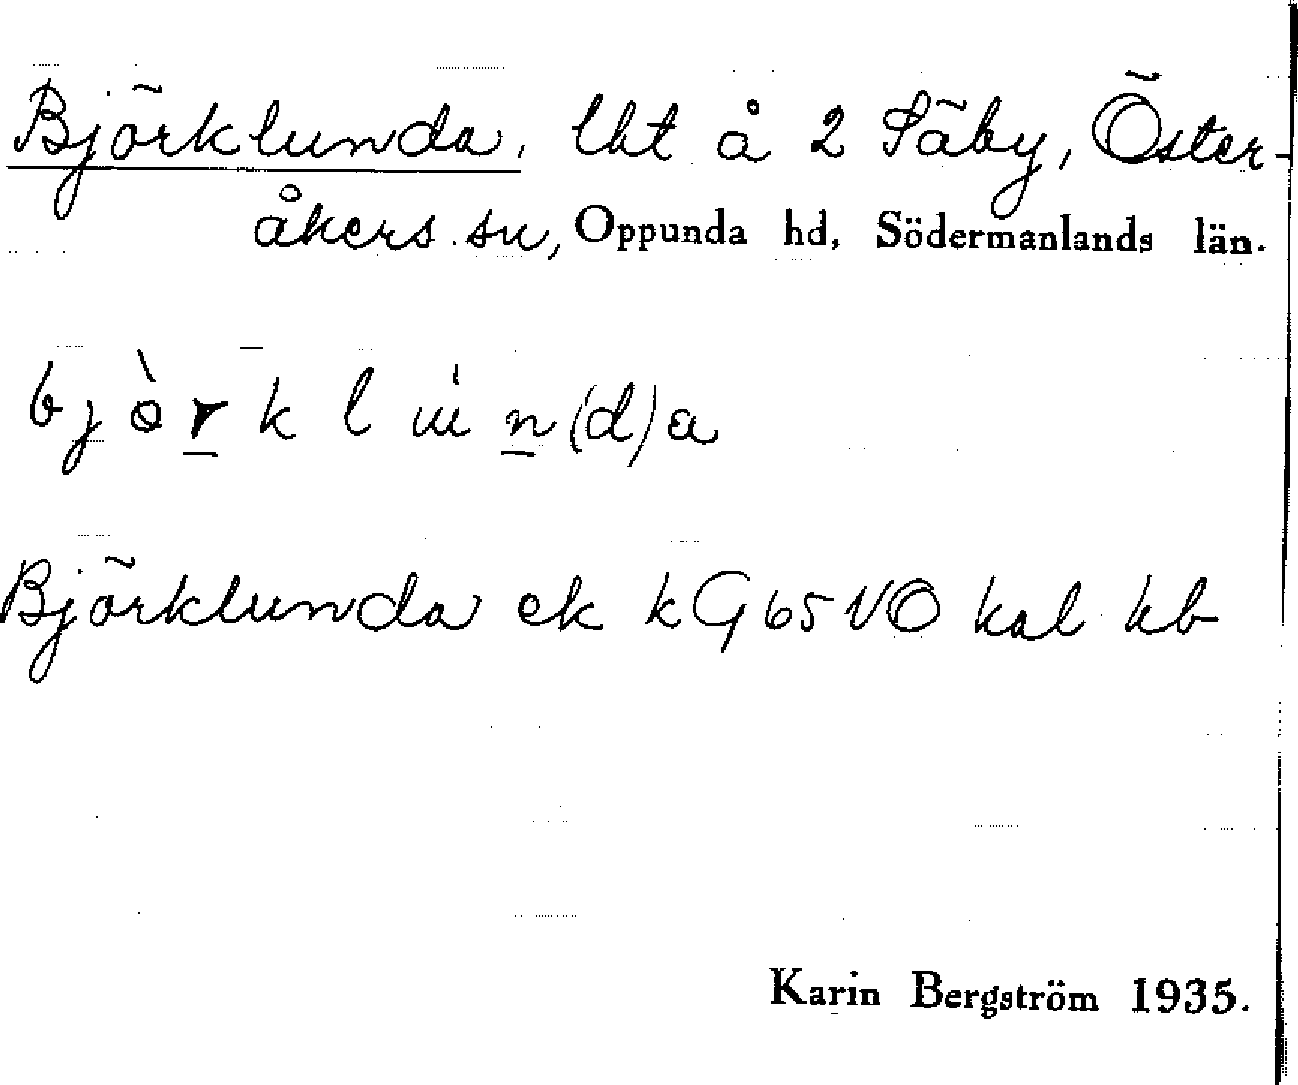 Björklunda, lht å 2 Täby, Öster-
åkers sn, Oppunda hd, Södermanlands län.
bjòrk lu̇n(d)a
Björklunda ek kG65VO kal kb
Karin Bergström 1935.